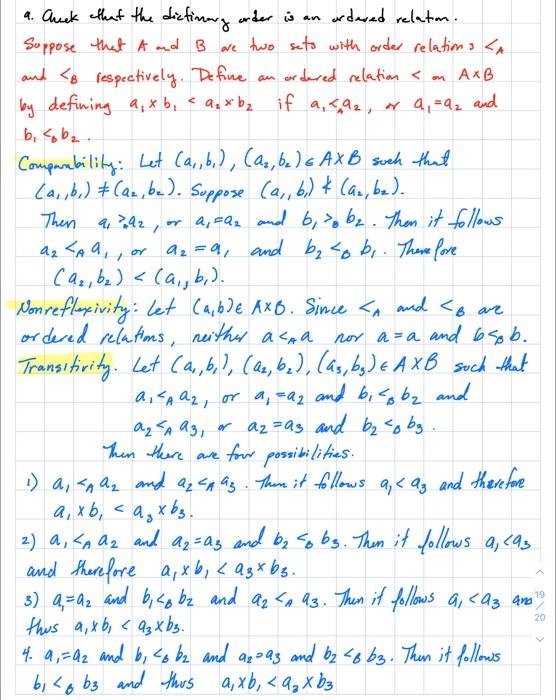 9. Check that the dictionary order is an ordered relation.
Suppose that A and B are two sets with order relations <A
and <B respectively. Define an ordered relation < on A×B
by defining a₁×b₁ < a₂×b₂ if a₁<A a₂, or a₁=a₂ and
b₁<B b₂.
Comparability: Let (a₁,b₁), (a₂,b₂)∈A×B such that
(a₁,b₁)≠(a₂,b₂). Suppose (a₁,b₁)≮(a₂,b₂).
Then a₁>a₂, or a₁=a₂ and b₁>B b₂. Then it follows
a₂<A a₁, or a₂=a₁ and b₂<B b₁. Therefore
(a₂,b₂)<(a₁,b₁).
Nonreflexivity: Let (a,b)∈A×B. Since <A and <B are
ordered relations, neither a<A a nor a=a and b<B b.
Transitivity. Let (a₁,b₁), (a₂,b₂), (a₃,b₃)∈A×B such that
a₁<A a₂, or a₁=a₂ and b₁<B b₂ and
a₂<A a₃, or a₂=a₃ and b₂<B b₃.
Then there are four possibilities.
1) a₁<A a₂ and a₂<A a₃. Then it follows a₁<a₃ and therefore
a₁×b₁ < a₃×b₃.
2) a₁<A a₂ and a₂=a₃ and b₂<B b₃. Then it follows a₁<a₃
and therefore a₁×b₁ < a₃×b₃.
3) a₁=a₂ and b₁<B b₂ and a₂<A a₃. Then it follows a₁<a₃ and
thus a₁×b₁ < a₃×b₃.
4. a₁=a₂ and b₁<B b₂ and a₂=a₃ and b₂<B b₃. Then it follows
b₁<B b₃ and thus a₁×b₁ < a₃×b₃
19
20